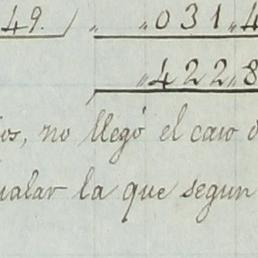 49. ) „ „031„4
„422„8
os, no llegó el caso d
ualar la que segun